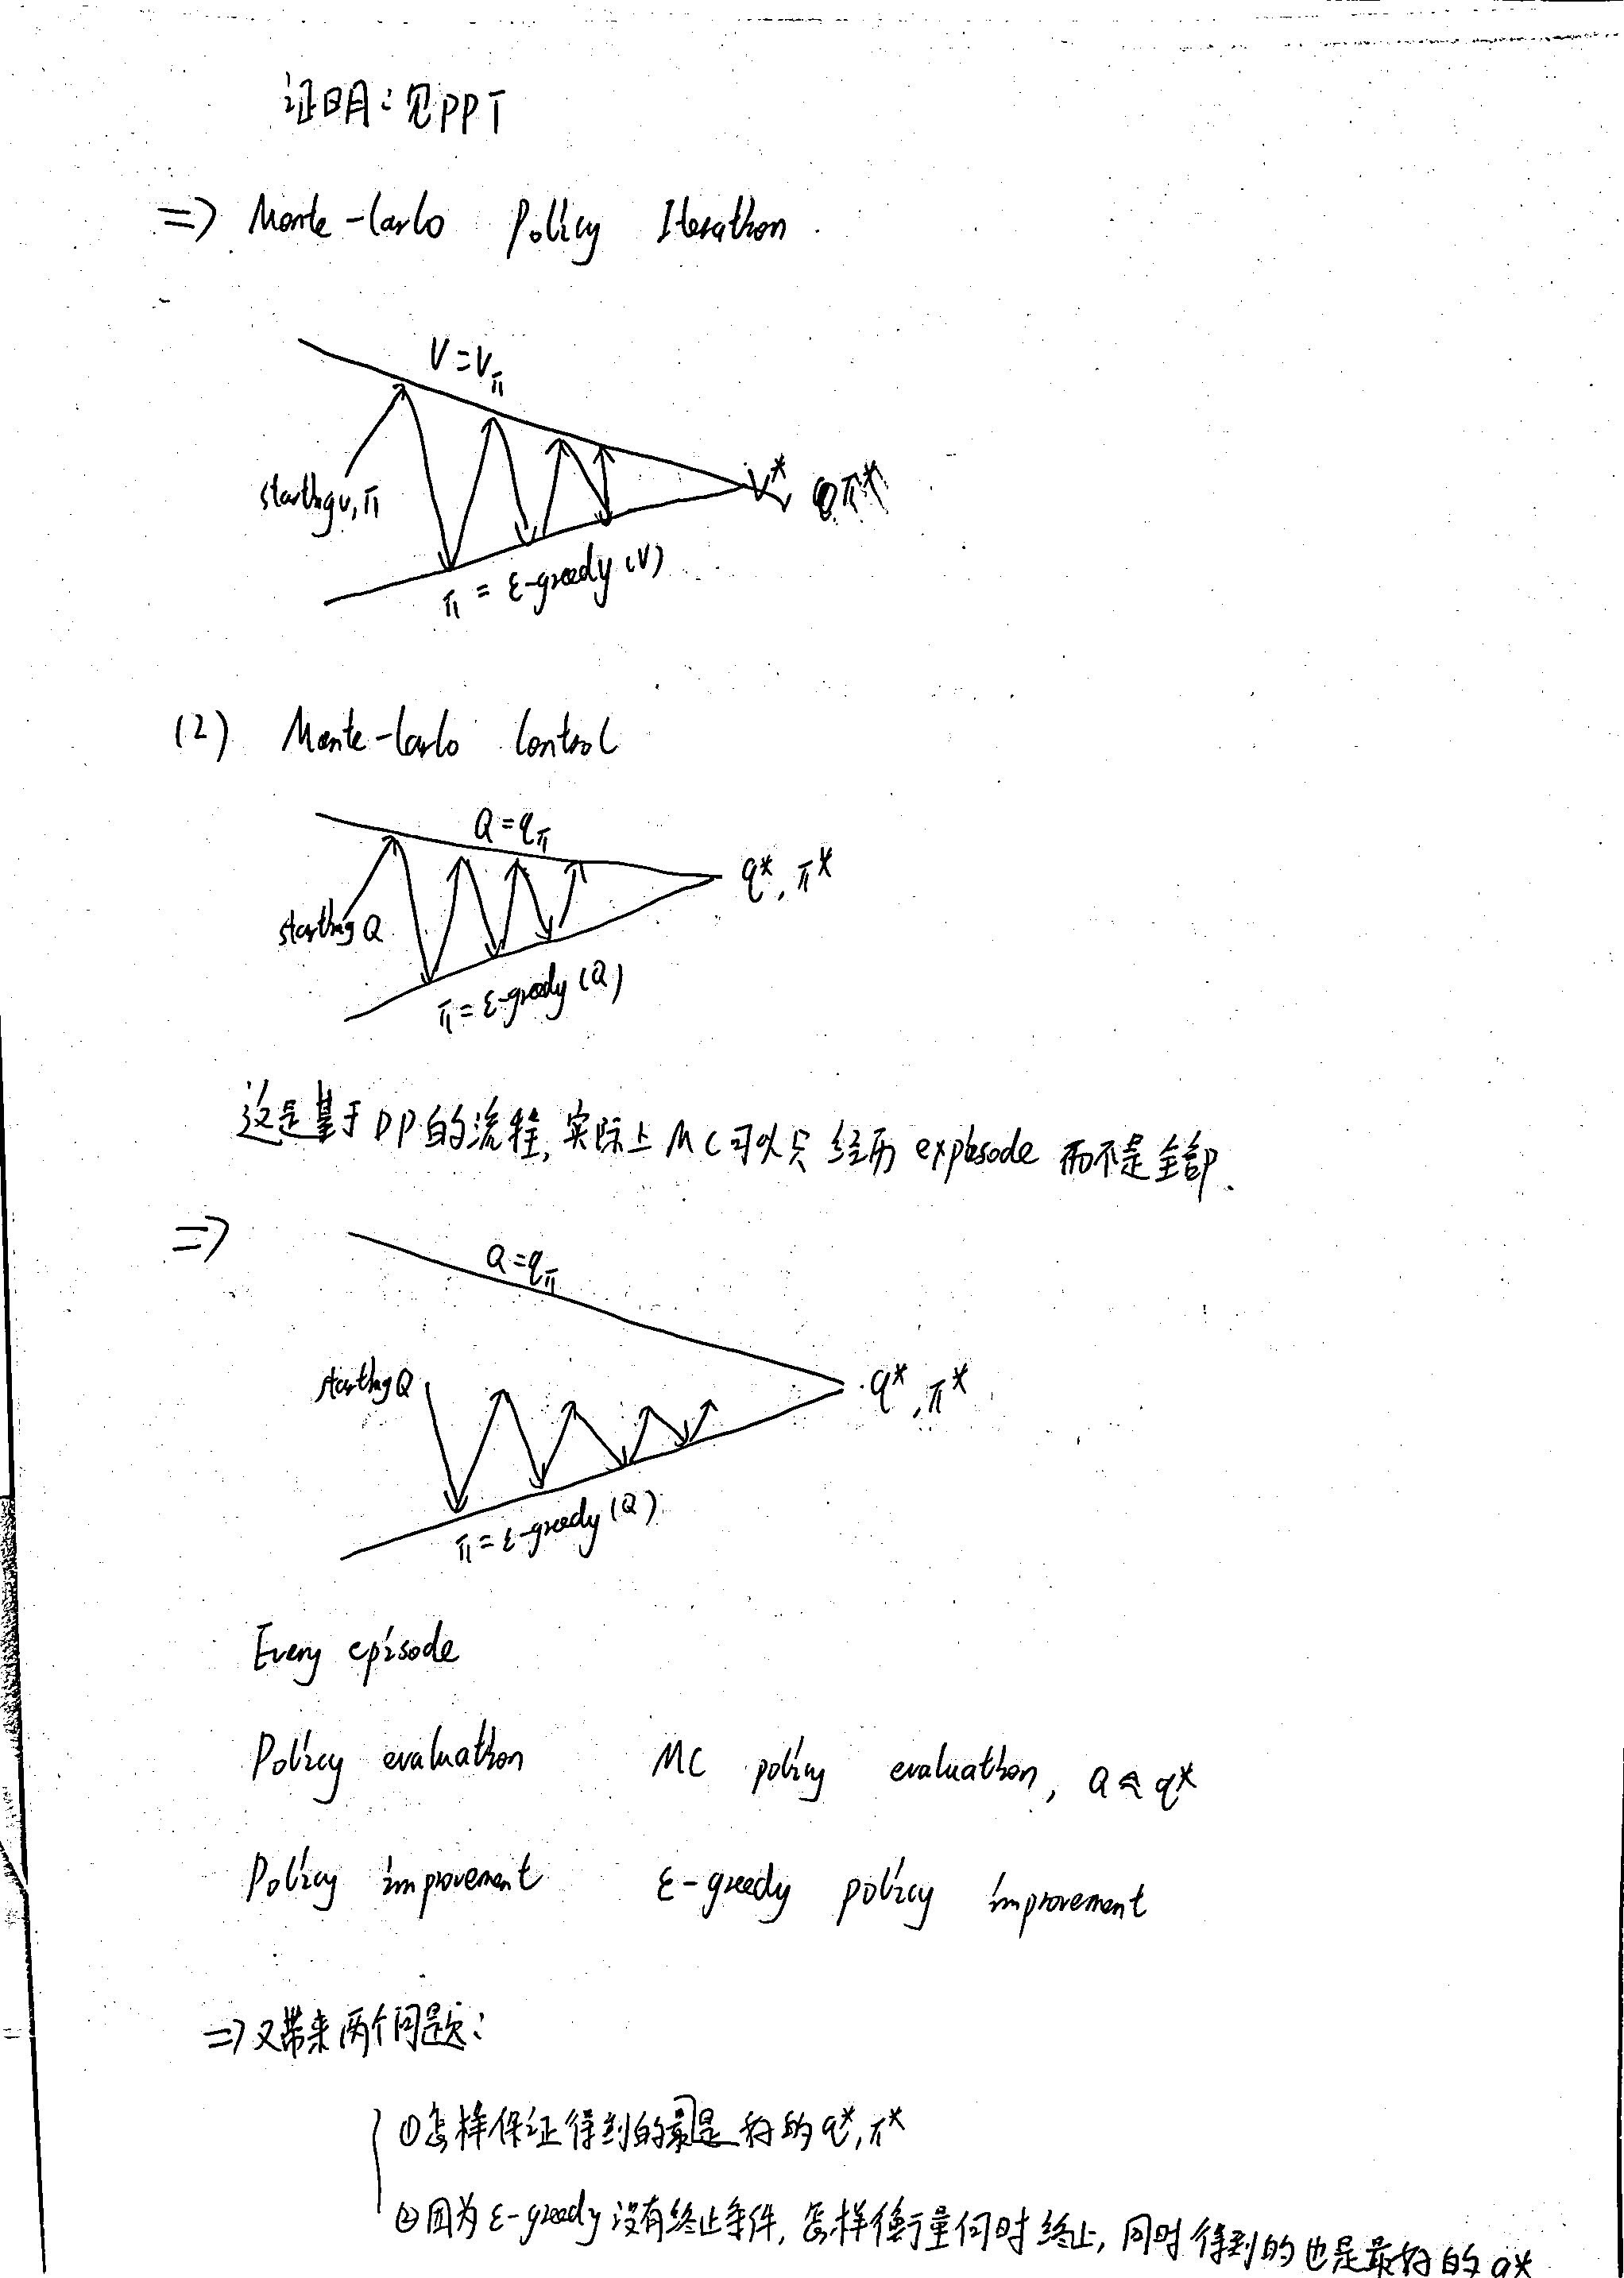 证明：见PPT
=> Monte-Carlo Policy Iteration
V=Vπ
starting v,π
V* π*
π = ε-greedy (V)
(2) Monte-Carlo Control
Q=qπ
q*, π*
starting Q
π=ε-greedy (Q)
这是基于DP的流程,实际上MC可以只经历 expisode 而不是全部.
=>
Q=qπ
starting Q
q*, π*
π=ε-greedy (Q)
Every episode
Policy evaluation MC policy evaluation, Q≈q*
Policy improvement ε-greedy policy improvement
=>又带来两个问题：
①怎样保证得到的是最好的q*,π*
②因为ε-greedy没有终止条件,怎样衡量何时终止,同时得到的也是最好的q*